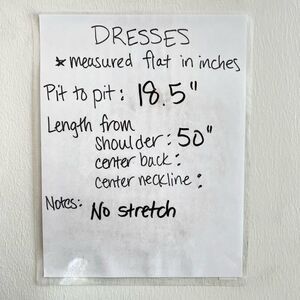 DRESSES
* measured flat in inches
Pit to pit: 18.5"
Length from
shoulder: 50"
center back:
center neckline:
Notes: No stretch